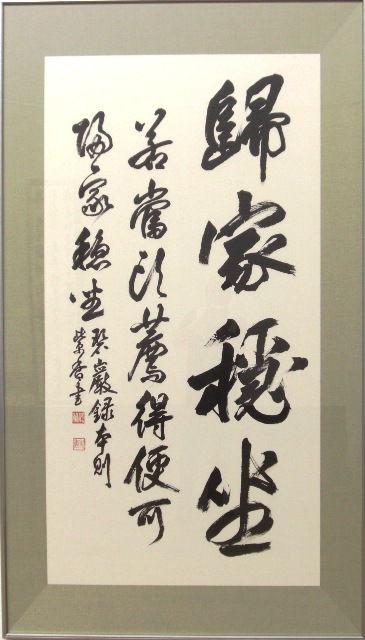 歸家穏坐
若當頭薦得便可
歸家穏坐
碧巖録本則
榮香書